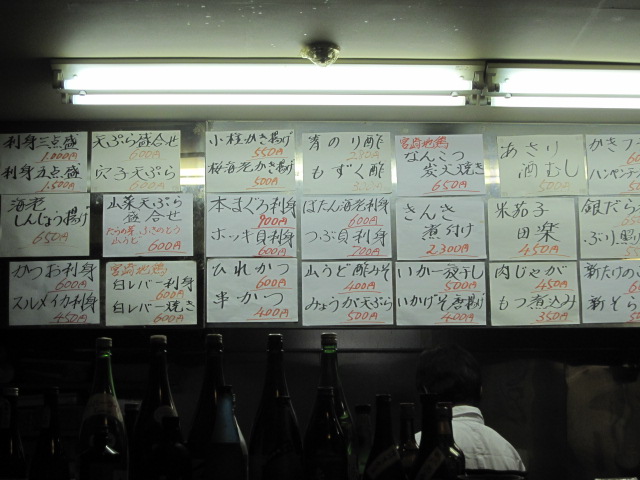 利身三点盛
1,000円
利身五点盛
1,500円
天ぷら盛合せ
600円
穴子天ぷら
600円
小柱かき揚げ
550円
桜海老かき揚
500円
岩のり酢
もずく酢
宮崎地鶏
なんこつ
炭火焼き
650円
あさり
酒むし
500円
かきフ
600
ハンペンチ
海老
しんじょう揚げ
650円
山菜天ぷら
盛合せ
たらの芽、ふきのとう
山うど
600円
本まぐろ利身
900円
ホッキ貝利身
600円
ぼたん海老利身
600円
つぶ貝利身
700円
きんき
煮付け
2,300円
米茄子
田楽
450円
銀だら
ぶり照
かつお利身
600円
スルメイカ利身
450円
宮崎地鶏
白レバー利身
600円
白レバー焼き
600円
ひれかつ
600円
串かつ
500円
山うど酢みそ
400円
みょうが天ぷら
500円
いか一夜干し
500円
いかげそ唐揚げ
400円
肉じゃが
450円
もつ煮込み
350円
新たけの
新そら